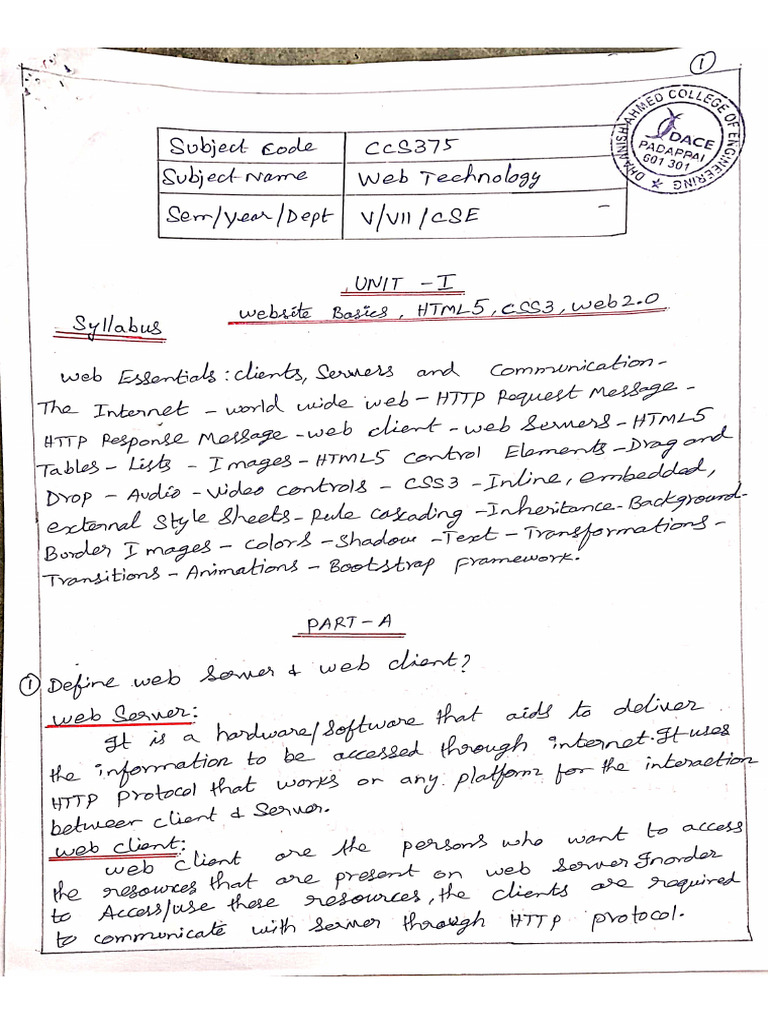 1
DHAANISH AHMED COLLEGE OF ENGINEERING
DACE
PADAPPAI
601 301
Subject Code CCS375
Subject Name Web Technology
Sem/Year/Dept V/VII/CSE
UNIT - I
Website Basics, HTML5, CSS3, Web 2.0
Syllabus
Web Essentials: clients, Servers and Communication-
The Internet - world wide web - HTTP Request Message -
HTTP Response Message - web client - web Servers - HTML5
Tables - Lists - Images - HTML5 control Elements - Drag and
Drop - Audio - Video controls - CSS3 - Inline, embedded,
external Style Sheets - Rule cascading - Inheritance - Background -
Border Images - colors - Shadow - Text - Transformations -
Transitions - Animations - Bootstrap framework.
PART-A
1 Define web server & web client?
web Server:
It is a hardware/software that aids to deliver
the information to be accessed through internet. It uses
HTTP Protocol that works on any platform for the interaction
between client & Server.
web client:
web client are the persons who want to access
the resources that are present on web server. Inorder
to Access/use these resources, the clients are required
to communicate with server through HTTP protocol.